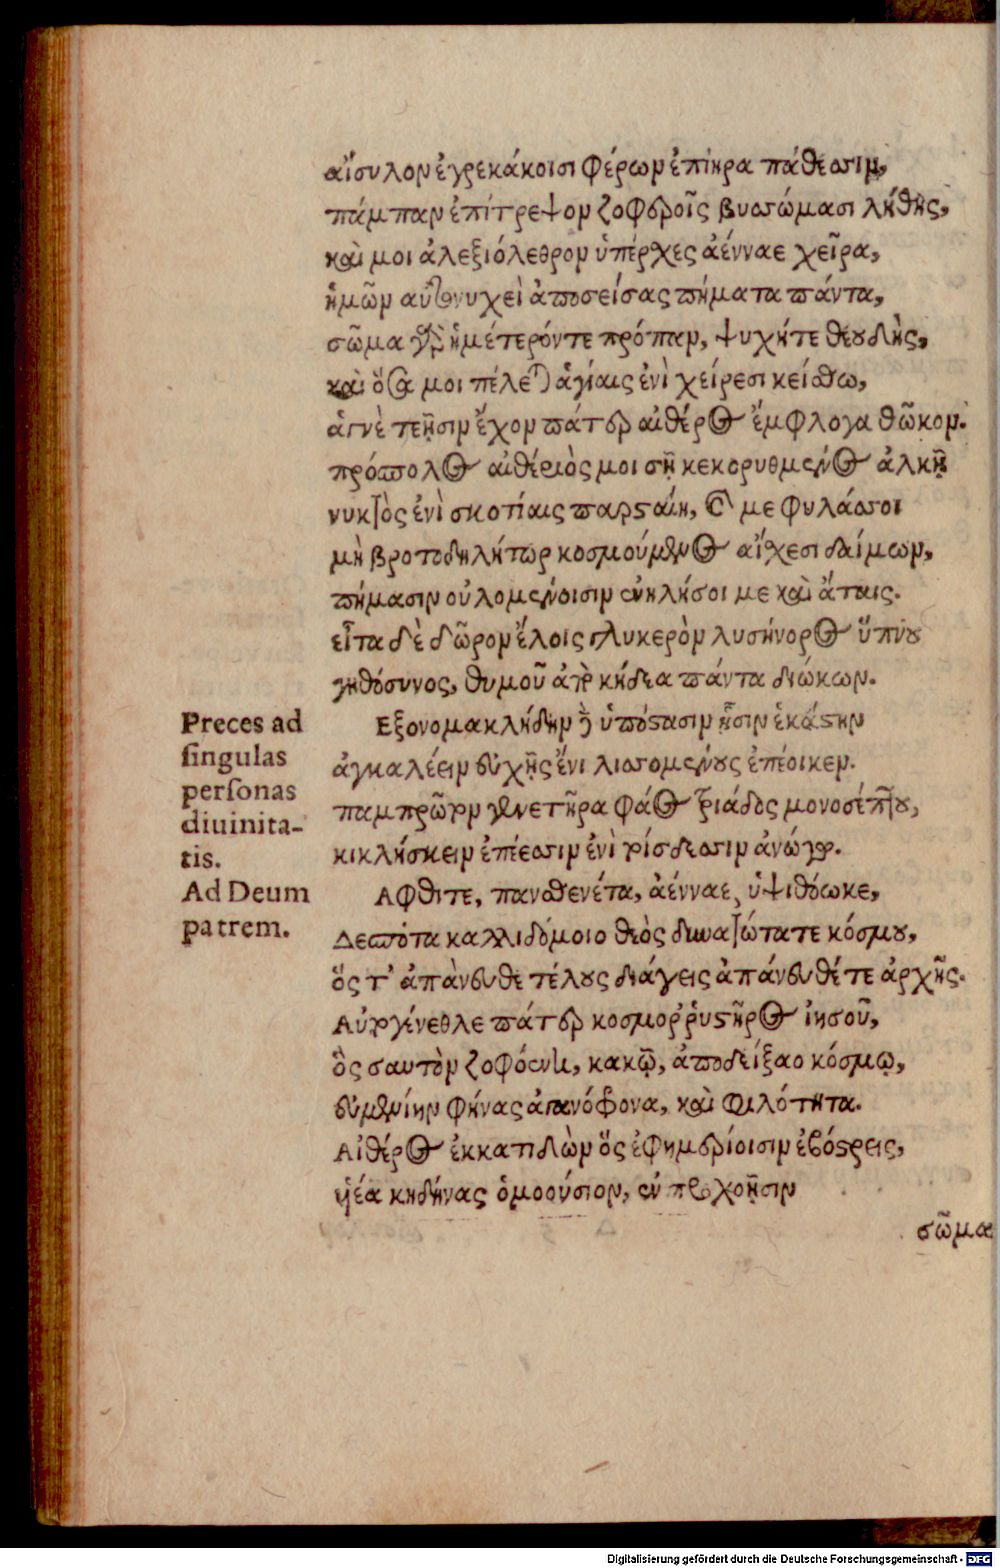 αἴσυλον ἐγρεκάκοισι φέρων ἐπίηρα πάθεσσιν,
πάμπαν ἐπίτρεψον ζοφεροῖς βυσσώμασι λήθης,
καὶ μοι ἀλεξιόλεθρον ὑπέρχες ἀένναε χεῖρα,
ἡμῶν αὐτονυχεὶ ἀποσείσας πήματα πάντα,
σῶμα γὰρ ἡμέτερόντε πρόπαν, ψυχήτε θεουδὴς,
καὶ ὅσσα μοι πέλεται ἁγίαις ἐνὶ χείρεσι κείσθω,
ἁγνὲ τεῇσιν ἔχον πάτερ αἰθέρος ἔμφλογα θῶκον.
πρόπολος αἰθέριὸς μοι σῇ κεκορυθμένος ἀλκῇ
νυκτὸς ἐνὶ σκοτίαις παρσταίη, καί με φυλάσσοι
μὴ βροτοδηλήτωρ κοσμούμενος αἴσχεσι δαίμων,
πήμασιν οὐλομένοισιν ἐνκλήσοι με καὶ ἄταις.
εἶτα δὲ δῶρον ἕλοις γλυκερὸν λυσήνορος ὕπνου
γηθόσυνος, θυμοῦ ἀπὸ κήδεα πάντα διώκων.
Preces ad
singulas
personas
diuinita-
tis.
Εξονομακλήδην ὑπόστασιν ᾗσιν ἑκάστην
ἀγκαλέειν εὐχῇς ἔνι λισσομένους ἐπέοικεν.
παμπρῶτον γενετῆρα φάος τριάδος μονοσέπτου,
κικλήσκειν ἐπέεσσιν ἐνὶ τρίσδεσσιν ἀνώγω.
Ad Deum
patrem.
Αφθιτε, πανσθενέτα, ἀένναε, ὑψιθόωκε,
Δεσπότα καλλιδόμοιο θεὸς δυνατώτατε κόσμου,
ὅς τ' ἀπάνευθε τέλους διάγεις ἀπάνευθέτε ἀρχῆς.
Αὐτογένεθλε πάτερ κοσμοῤῥυστῆρος ἰησοῦ,
ὃς σαυτὸν ζοφόεντι, κακῷ, ἀποδείξαο κόσμῳ,
εὐμενίην φήνας ἀπανόφρονα, καὶ φιλότητα.
Αἰθέρος ἐκκατιδὼν ὅς ἐφημερίοισιν ἐβόστρεις,
υἱέα κηδήνας ὁμοούσιον, ἐν προχοῇσιν
σῶμα
Digitalisierung gefördert durch die Deutsche Forschungsgemeinschaft - DFG